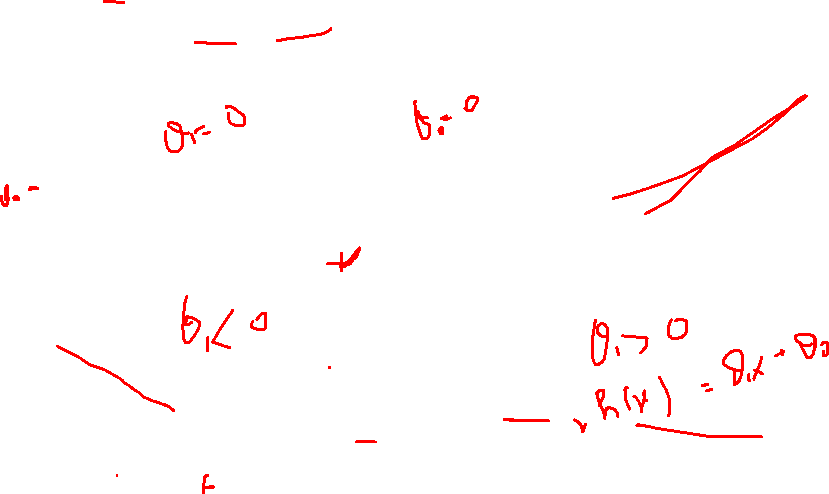 θ₁ = 0
θ₀ = 0
θ₁ < 0
θ₁ > 0
h(x) = θ₁x + θ₀